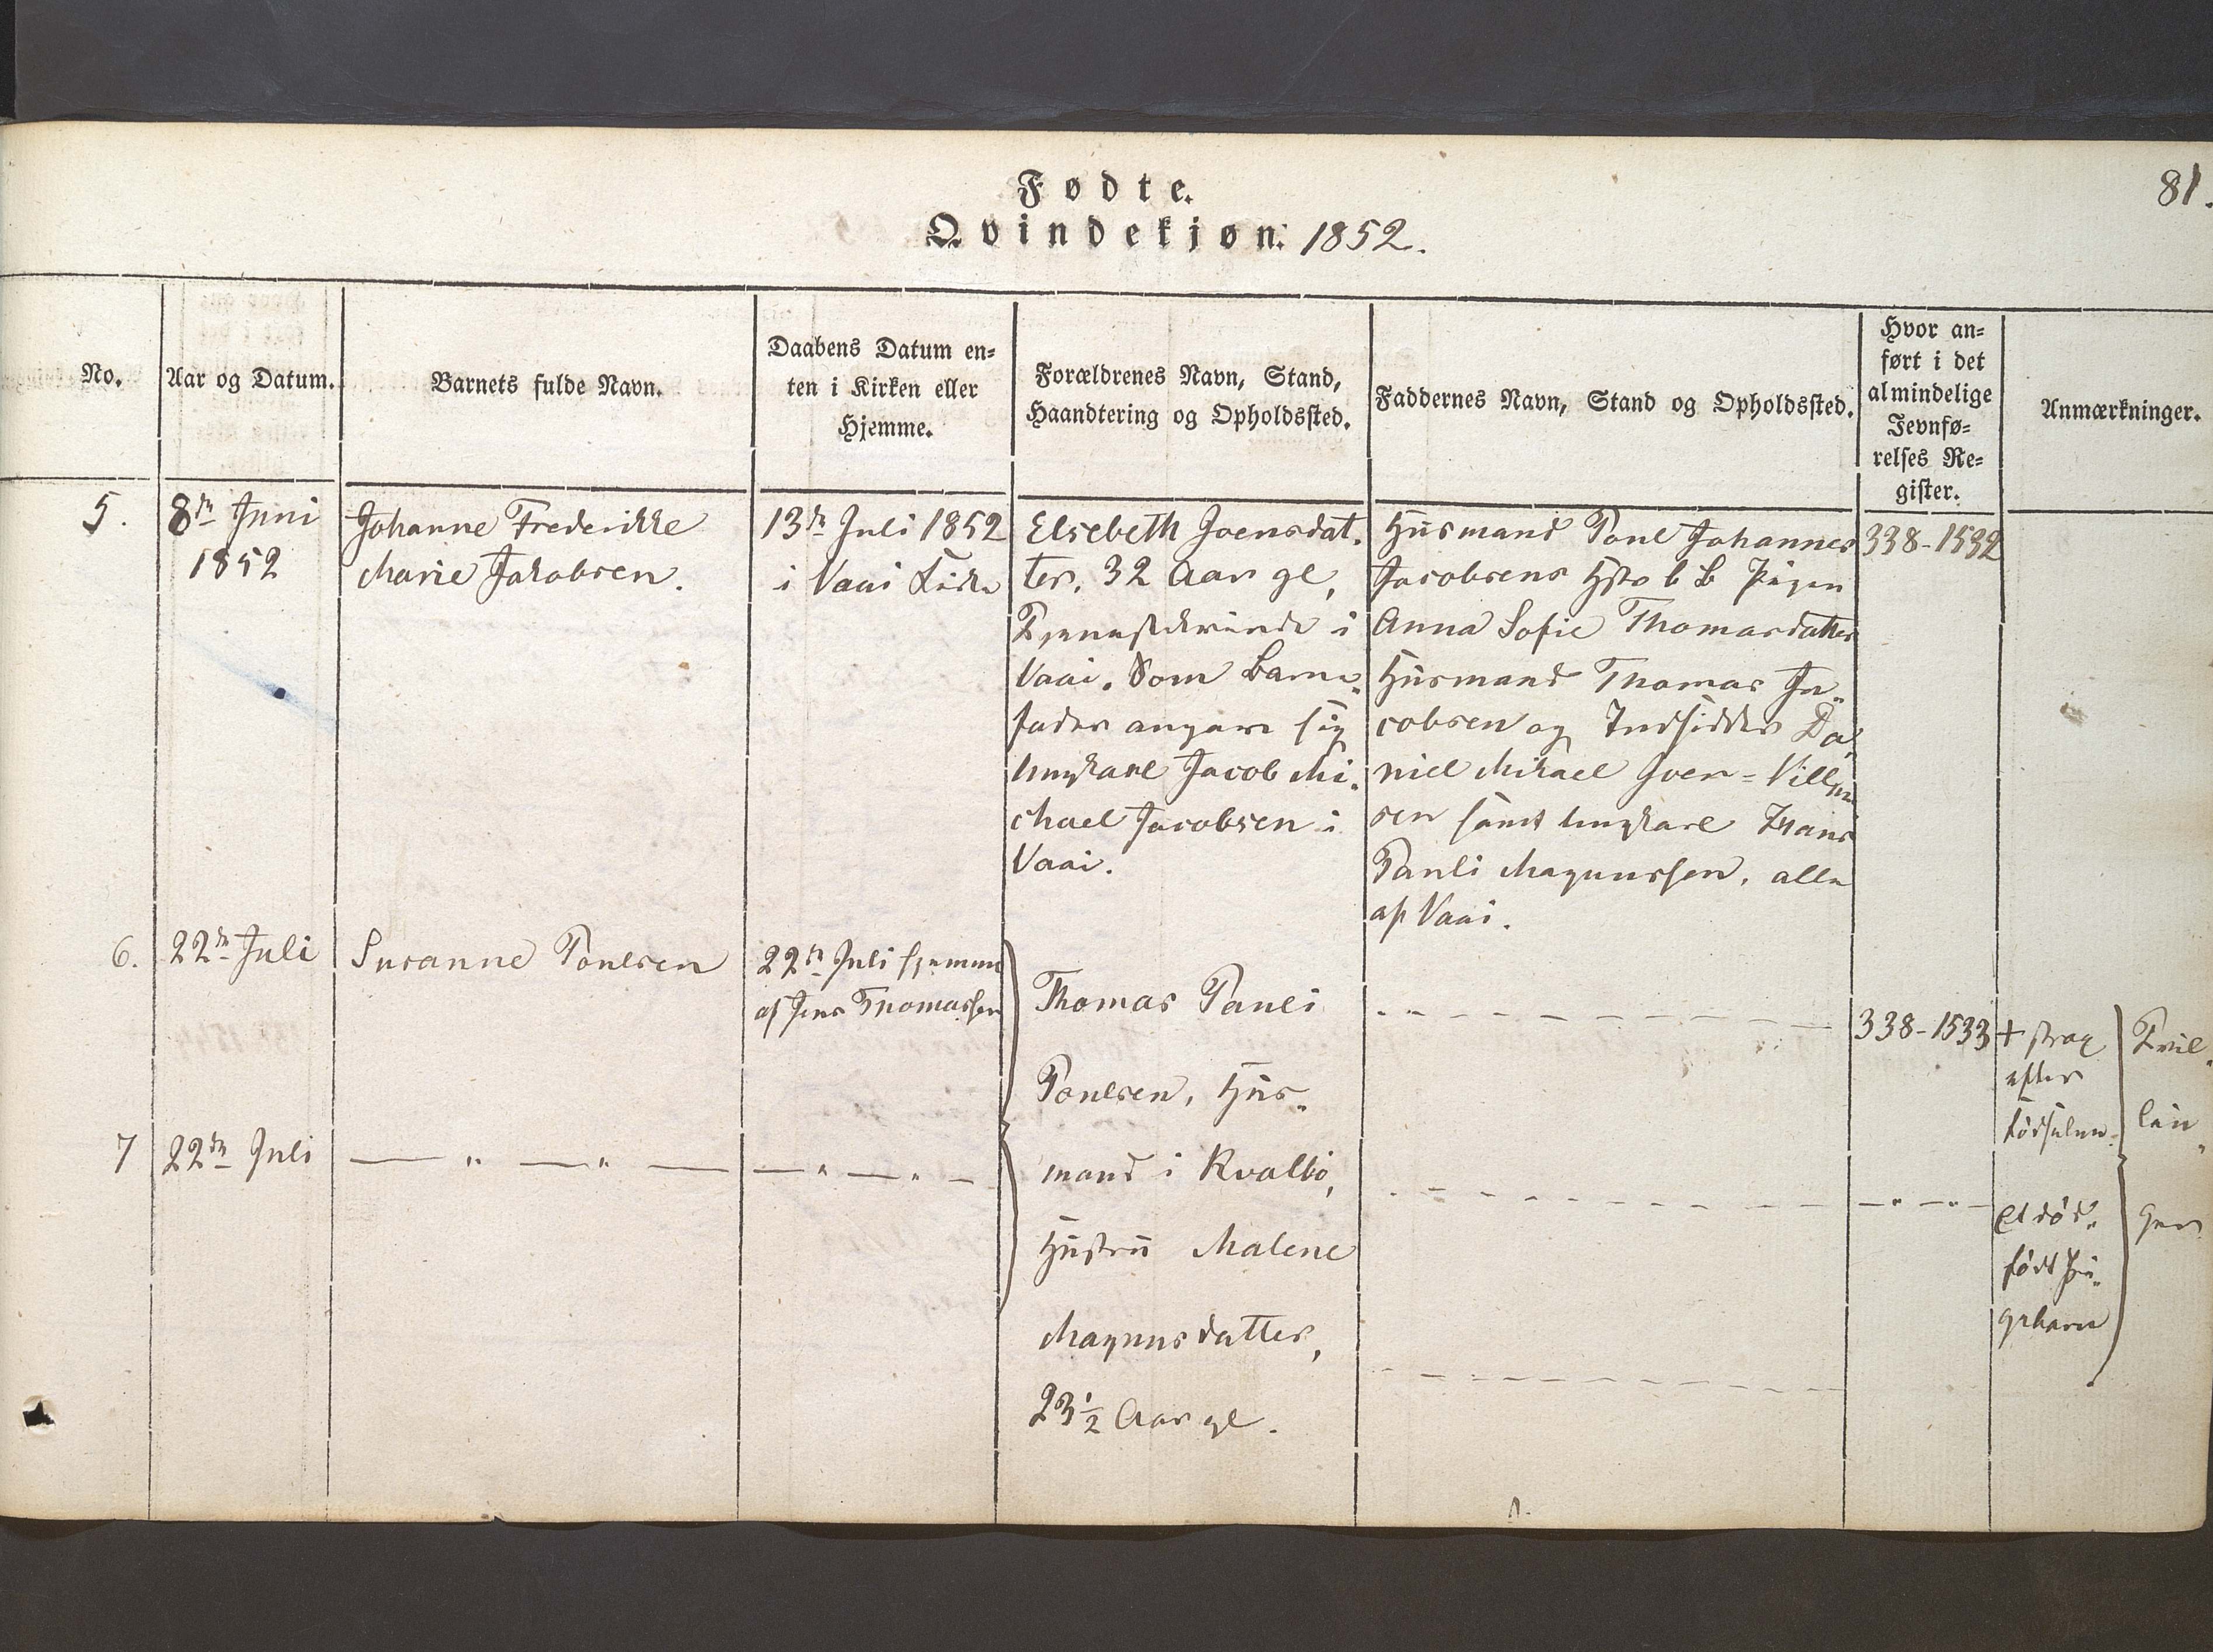 81.
Fødte.
Qvindekjøn. 1852.
No.
Aar og Datum.
Barnets fulde Navn.
Daabens Datum en-
ten i Kirken eller
Hjemme.
Forældrenes Navn, Stand,
Haandtering og Opholdssted.
Faddernes Navn, Stand og Opholdssted.
Hvor an-
ført i det
almindelige
Jevnfø-
relses Re-
gister.
Anmærkninger.
5.
8de Juni
1852
Johanne Frederikke
Marie Jakobsen.
13de Juli 1852
i Vaai Kirke
Elsebeth Joensdat-
ter, 32 Aar gl,
Tjenesteqvinde i
Vaai. Som Barne-
fader angave sig
Ungkarl Jacob Mi-
chael Jacobsen i
Vaai.
Husmand Poul Johannes
Jacobsens Hstr b B Pigen
Anna Sofie Thomasdatter
Husmand Thomas Ja-
cobsen og Indsidder Da-
niel Mikael Joen-
sen samt Ungkarl Hans
Pauli Magnussen, alle
af Vaai.
338-1532
6.
22de Juli
Susanne Poulsen
22de Juli hjemme
af Jens Thomassen
Thomas Pauli
Poulsen, Hus-
mand i Kvalbö,
Hustru Malene
Magnusdatter,
23 1/2 Aar gl.
338-1533
+ strax
efter
Födselen.
Tvil-
lin-
ger
7
22de Juli
— " — " —
— " — " —
— " — " —
Et död-
födt Pi-
gebarn